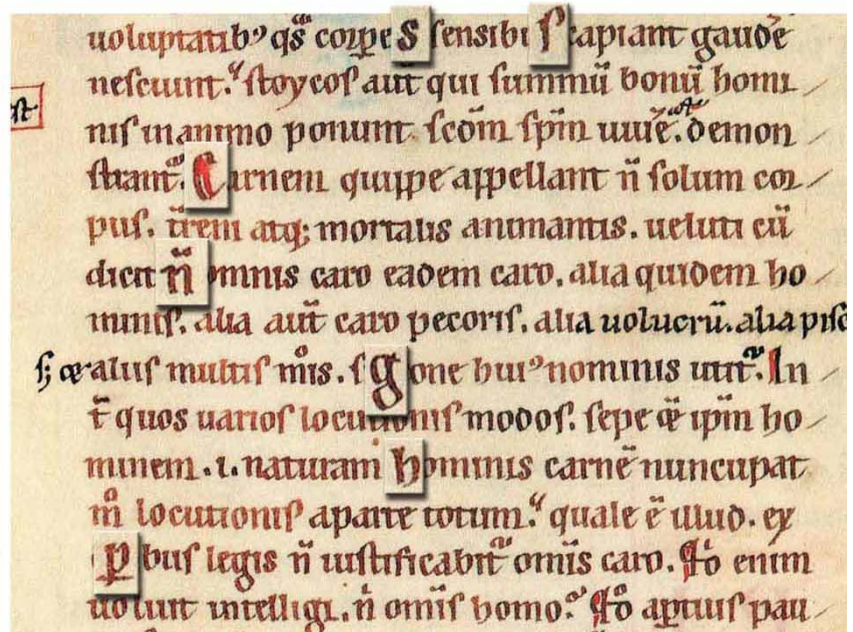 uoluptatibꝯ qͣs corꝑeſ ſenſibi ſ capiant gaudē
neſciunt. ſtoycoſ aut̄ qui ſummū bonū homi
niſ in animo ponunt. ſcd̄m ſpm̄ uiuē. demon
ſtrant. Carnem quippe appellant n̄ ſolum cor
puſ. tr̄em atq; mortalis animantis. ueluti cū
dicit n̄ omnis caro eadem caro. alia quidem ho
miniſ. alia aut̄ caro pecoriſ. alia uolucrū. alia piſc
ſ; & aliiſ multiſ mͦis. ſgͦone huiꝯ nominis utit᷑. In
t̄ quos uarioſ locutioniſ modoſ. ſepe & ipm̄ ho
minem .i. naturam hominis carnē nuncupat
mͦ locutioniſ a parte totum. quale ē illud. ex
ꝑbuſ legis n̄ iuſtificabit᷑ omīs caro. Qͦd enim
uoluit intelligi. n̄ omīſ homo. Qͦd aꝑtiuſ pau